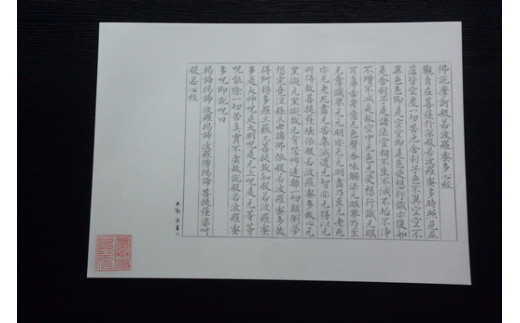 佛説摩訶般若波羅蜜多心経
觀自在菩薩行深般若波羅蜜多時照見五
蘊皆空度一切苦厄舎利子色不異空空不
異色色即是空空即是色受想行識亦復如
是舎利子是諸法空相不生不滅不垢不浄
不増不減是故空中无色无受想行識无眼
耳鼻舌身意无色聲香味觸法无眼界乃至
无意識界无无明亦无无明盡乃至无老死
亦无老死盡无苦集滅道无智亦无得以无
所得故菩提薩埵依般若波羅蜜多故心无
罣礙无罣礙故无有恐怖遠離一切顛倒夢
想究竟涅槃三世諸佛依般若波羅蜜多故
得阿耨多羅三藐三菩提故知般若波羅蜜
多是大神呪是大明呪是无上呪是无等等
呪能除一切苦真實不虚故説般若波羅蜜
多呪即説呪曰
揭諦揭諦 波羅揭諦 波羅僧揭諦 菩提薩婆訶
般若心経